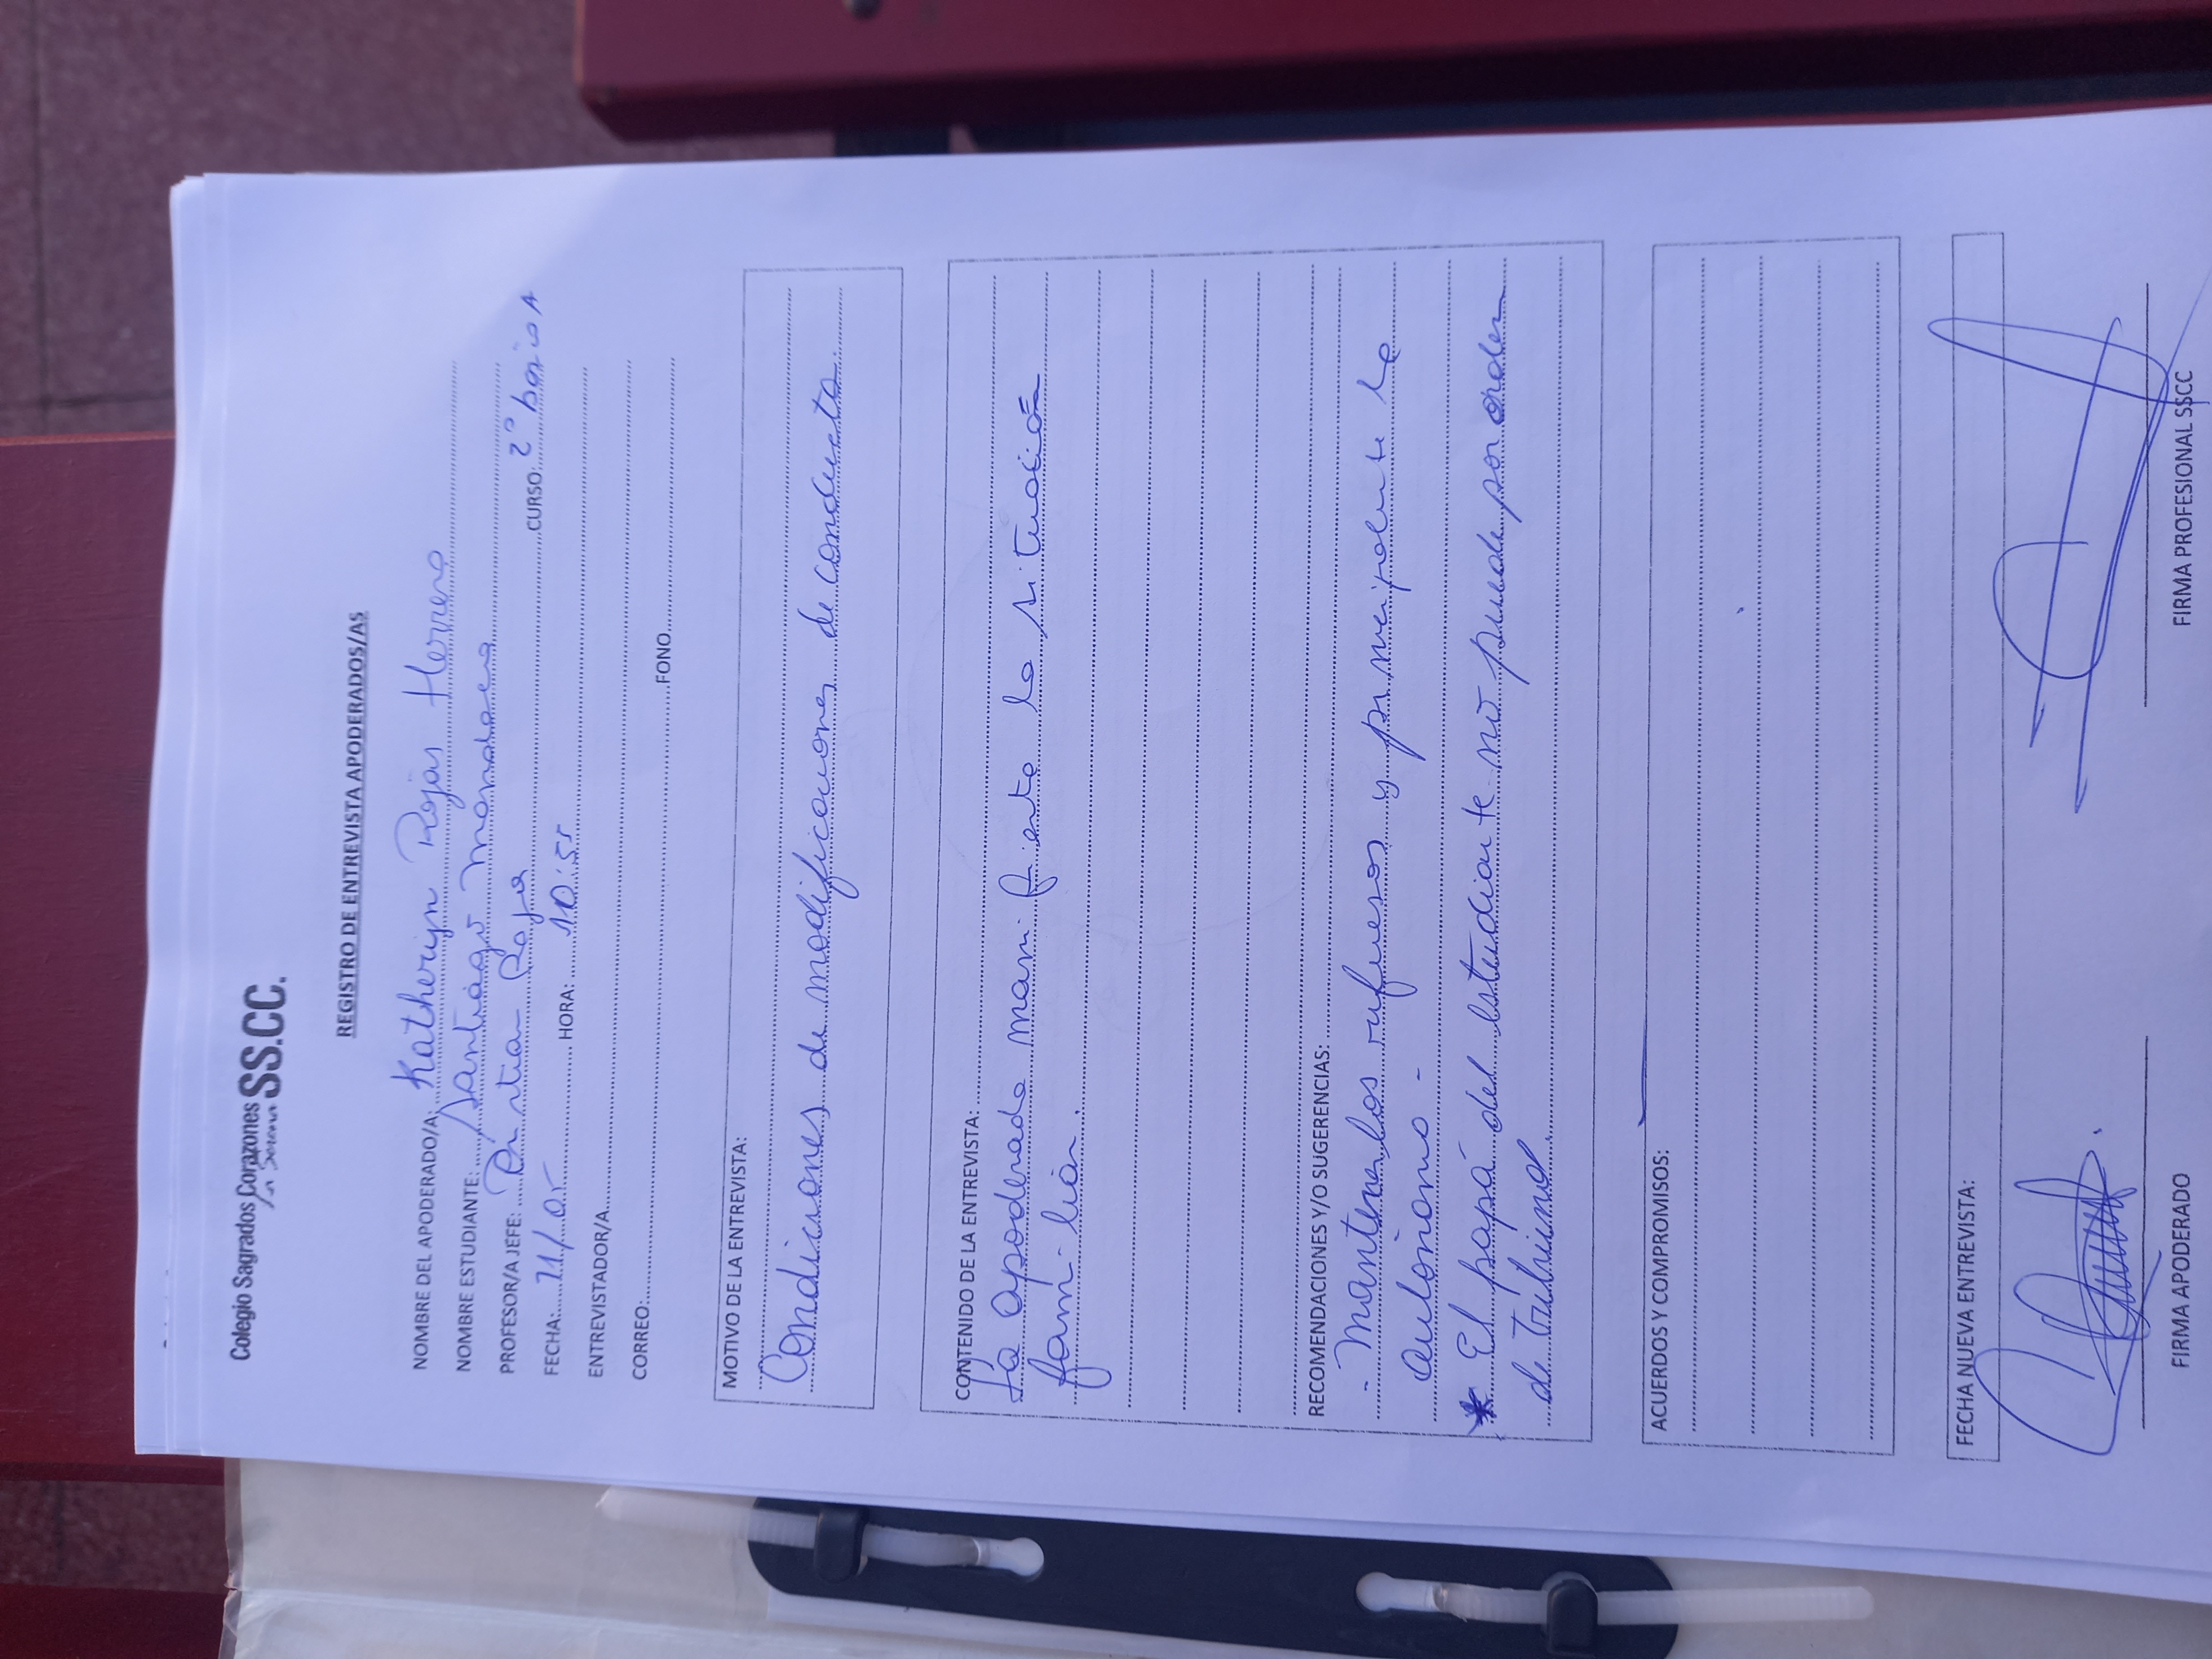 Colegio Sagrados Corazones SS.CC.
La Serena
REGISTRO DE ENTREVISTA APODERADOS/AS
NOMBRE DEL APODERADO/A: Katherijn Rojas Herrera
NOMBRE ESTUDIANTE: Santiago Mondaca
PROFESOR/A JEFE: Rojas CURSO: 2° básico A
FECHA: 11/ HORA: 10:55
ENTREVISTADOR/A
CORREO: FONO
MOTIVO DE LA ENTREVISTA:
Condiciones de modificaciones de conducta.
CONTENIDO DE LA ENTREVISTA:
La apoderada manifiesta la situación
familiar.
RECOMENDACIONES Y/O SUGERENCIAS:
- Mantener los refuerzos y principalmente la
autonomo -
* El papá del estudiante no puede por orden
de tribunal.
ACUERDOS Y COMPROMISOS:
FECHA NUEVA ENTREVISTA:
FIRMA APODERADO FIRMA PROFESIONAL SSCC